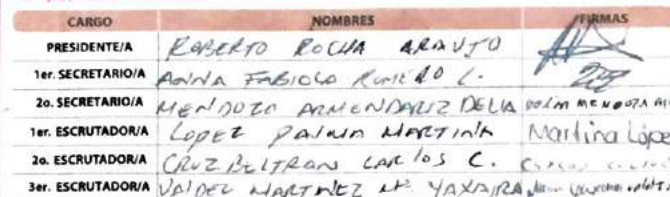 CARGO NOMBRES FIRMAS
PRESIDENTE/A ROBERTO ROCHA ARAUJO
1er. SECRETARIO/A ANNA FABIOLA ROMERO L.
2o. SECRETARIO/A MENDOZA ARMENDARIZ DELIA MENDOZA
1er. ESCRUTADOR/A LOPEZ MARTINA Martina López
2o. ESCRUTADOR/A CRUZ BELTRAN CARLOS C.
3er. ESCRUTADOR/A VALDEZ MARTINEZ Ma. YAXAIRA